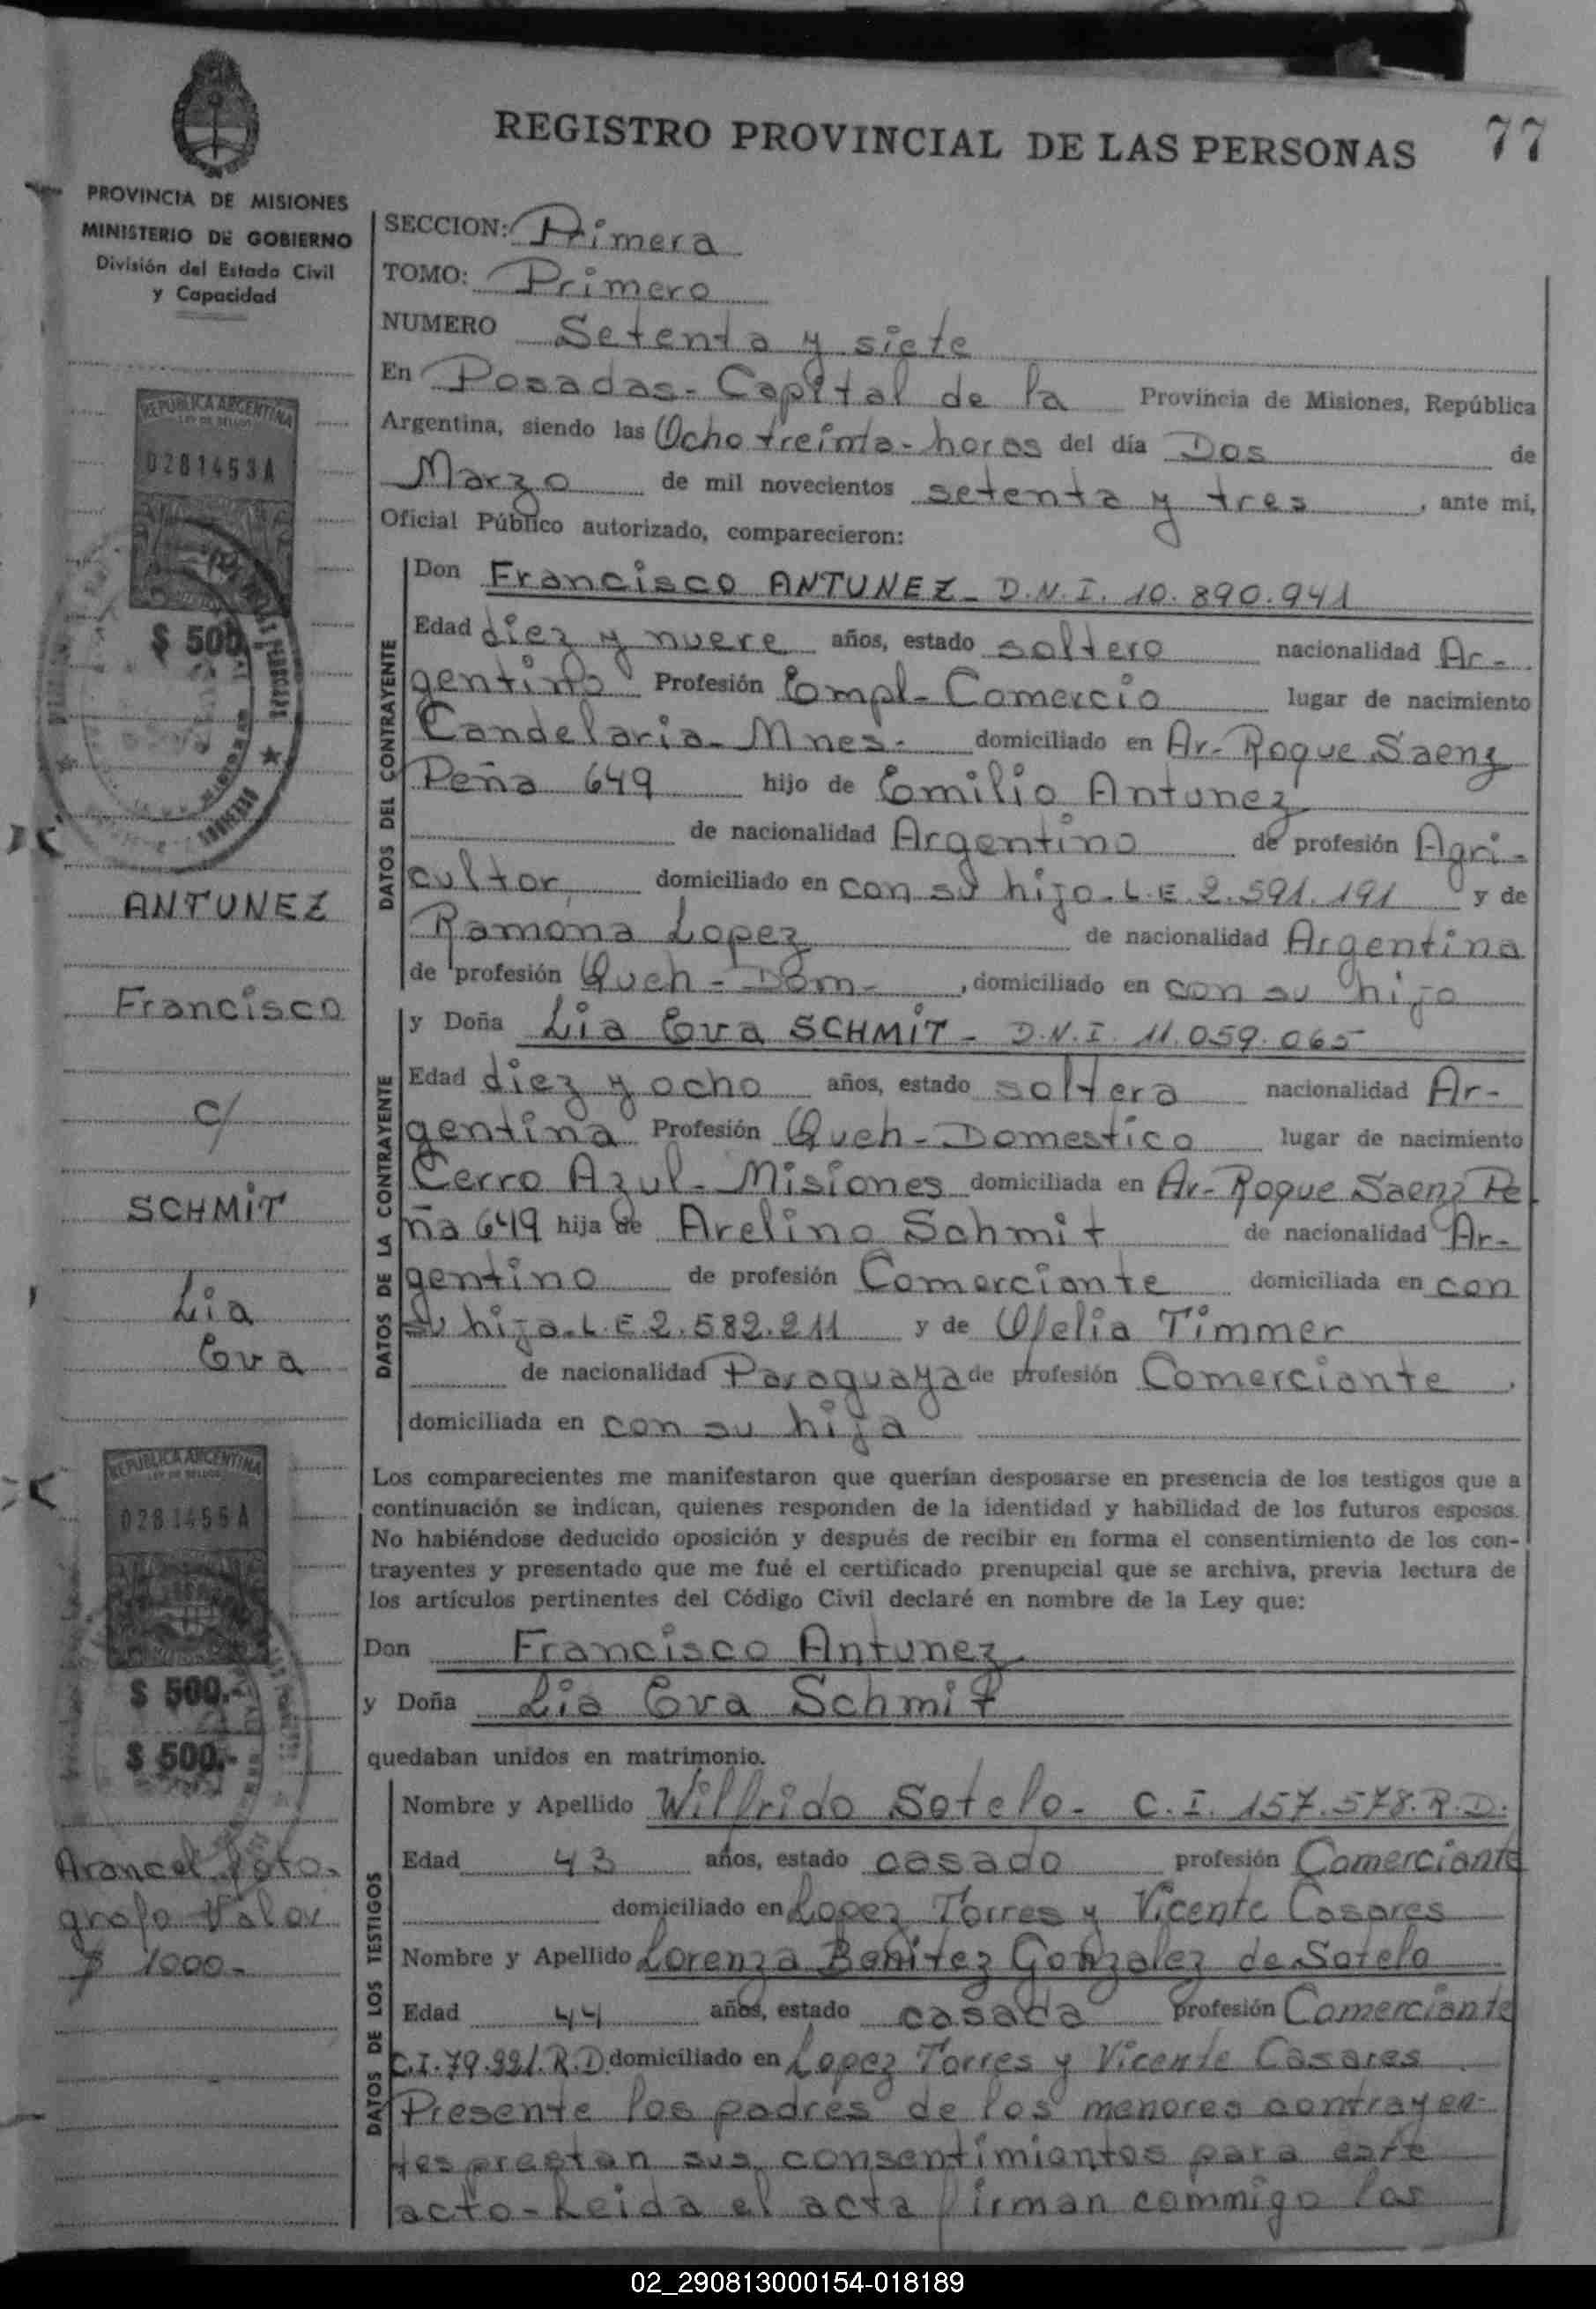 REGISTRO PROVINCIAL DE LAS PERSONAS 77
PROVINCIA DE MISIONES
MINISTERIO DE GOBIERNO
División del Estado Civil
y Capacidad
SECCION: Primera
TOMO: Primero
NUMERO Setenta y siete
En Posadas - Capital de la Provincia de Misiones, República
Argentina, siendo las Ocho treinta - horas del día Dos de
Marzo de mil novecientos setenta y tres, ante mi,
Oficial Público autorizado, comparecieron:
REPUBLICA ARGENTINA
LEY DE SELLOS
0281453A
$ 500
DATOS DEL CONTRAYENTE
Don Francisco ANTUNEZ - D.N.I. 10.890.941
Edad diez y nueve años, estado soltero nacionalidad Ar-
gentino Profesión Empl- Comercio lugar de nacimiento
Candelaria - Mnes. domiciliado en Av- Roque Saenz
Peña 649 hijo de Emilio Antunez
de nacionalidad Argentino de profesión Agri-
cultor domiciliado en con su hijo - L.E. 2.591.191 y de
Ramona Lopez de nacionalidad Argentina
de profesión Queh - Dom- , domiciliado en con su hijo
DATOS DE LA CONTRAYENTE
y Doña Lia Eva SCHMIT - D.N.I. 11.059.065
Edad diez y ocho años, estado soltera nacionalidad Ar-
gentina Profesión Queh - Domestico lugar de nacimiento
Cerro Azul - Misiones domiciliada en Av- Roque Saenz Pe
ña 649 hija de Avelino Schmit de nacionalidad Ar-
gentino de profesión Comerciante domiciliada en con
su hija - L.E 2.582.211 y de Ofelia Timmer
de nacionalidad Paraguaya de profesión Comerciante .
domiciliada en con su hija
ANTUNEZ
Francisco
c/
SCHMIT
Lia
Eva
REPUBLICA ARGENTINA
LEY DE SELLOS
$ 500.-
$ 500.-
Arancel foto-
grafo Valor
$ 1000-
Los comparecientes me manifestaron que querían desposarse en presencia de los testigos que a
continuación se indican, quienes responden de la identidad y habilidad de los futuros esposos.
No habiéndose deducido oposición y después de recibir en forma el consentimiento de los con-
trayentes y presentado que me fué el certificado prenupcial que se archiva, previa lectura de
los artículos pertinentes del Código Civil declaré en nombre de la Ley que:
Don Francisco Antunez
y Doña Lia Eva Schmit
quedaban unidos en matrimonio.
DATOS DE LOS TESTIGOS
Nombre y Apellido Wilfrido Sotelo - C.I. 157.578.R.D.
Edad 43 años, estado casado profesión Comerciante
domiciliado en Lopez Torres y Vicente Casares
Nombre y Apellido Lorenza Benitez Gonzalez de Sotelo
Edad 44 años, estado casada profesión Comerciante
C.I. 79.991.R.D domiciliado en Lopez Torres y Vicente Casares
Presente los padres de los menores contrayen-
tes prestan sus consentimientos para este
acto - Leida el acta firman commigo los
02_290813000154-018189